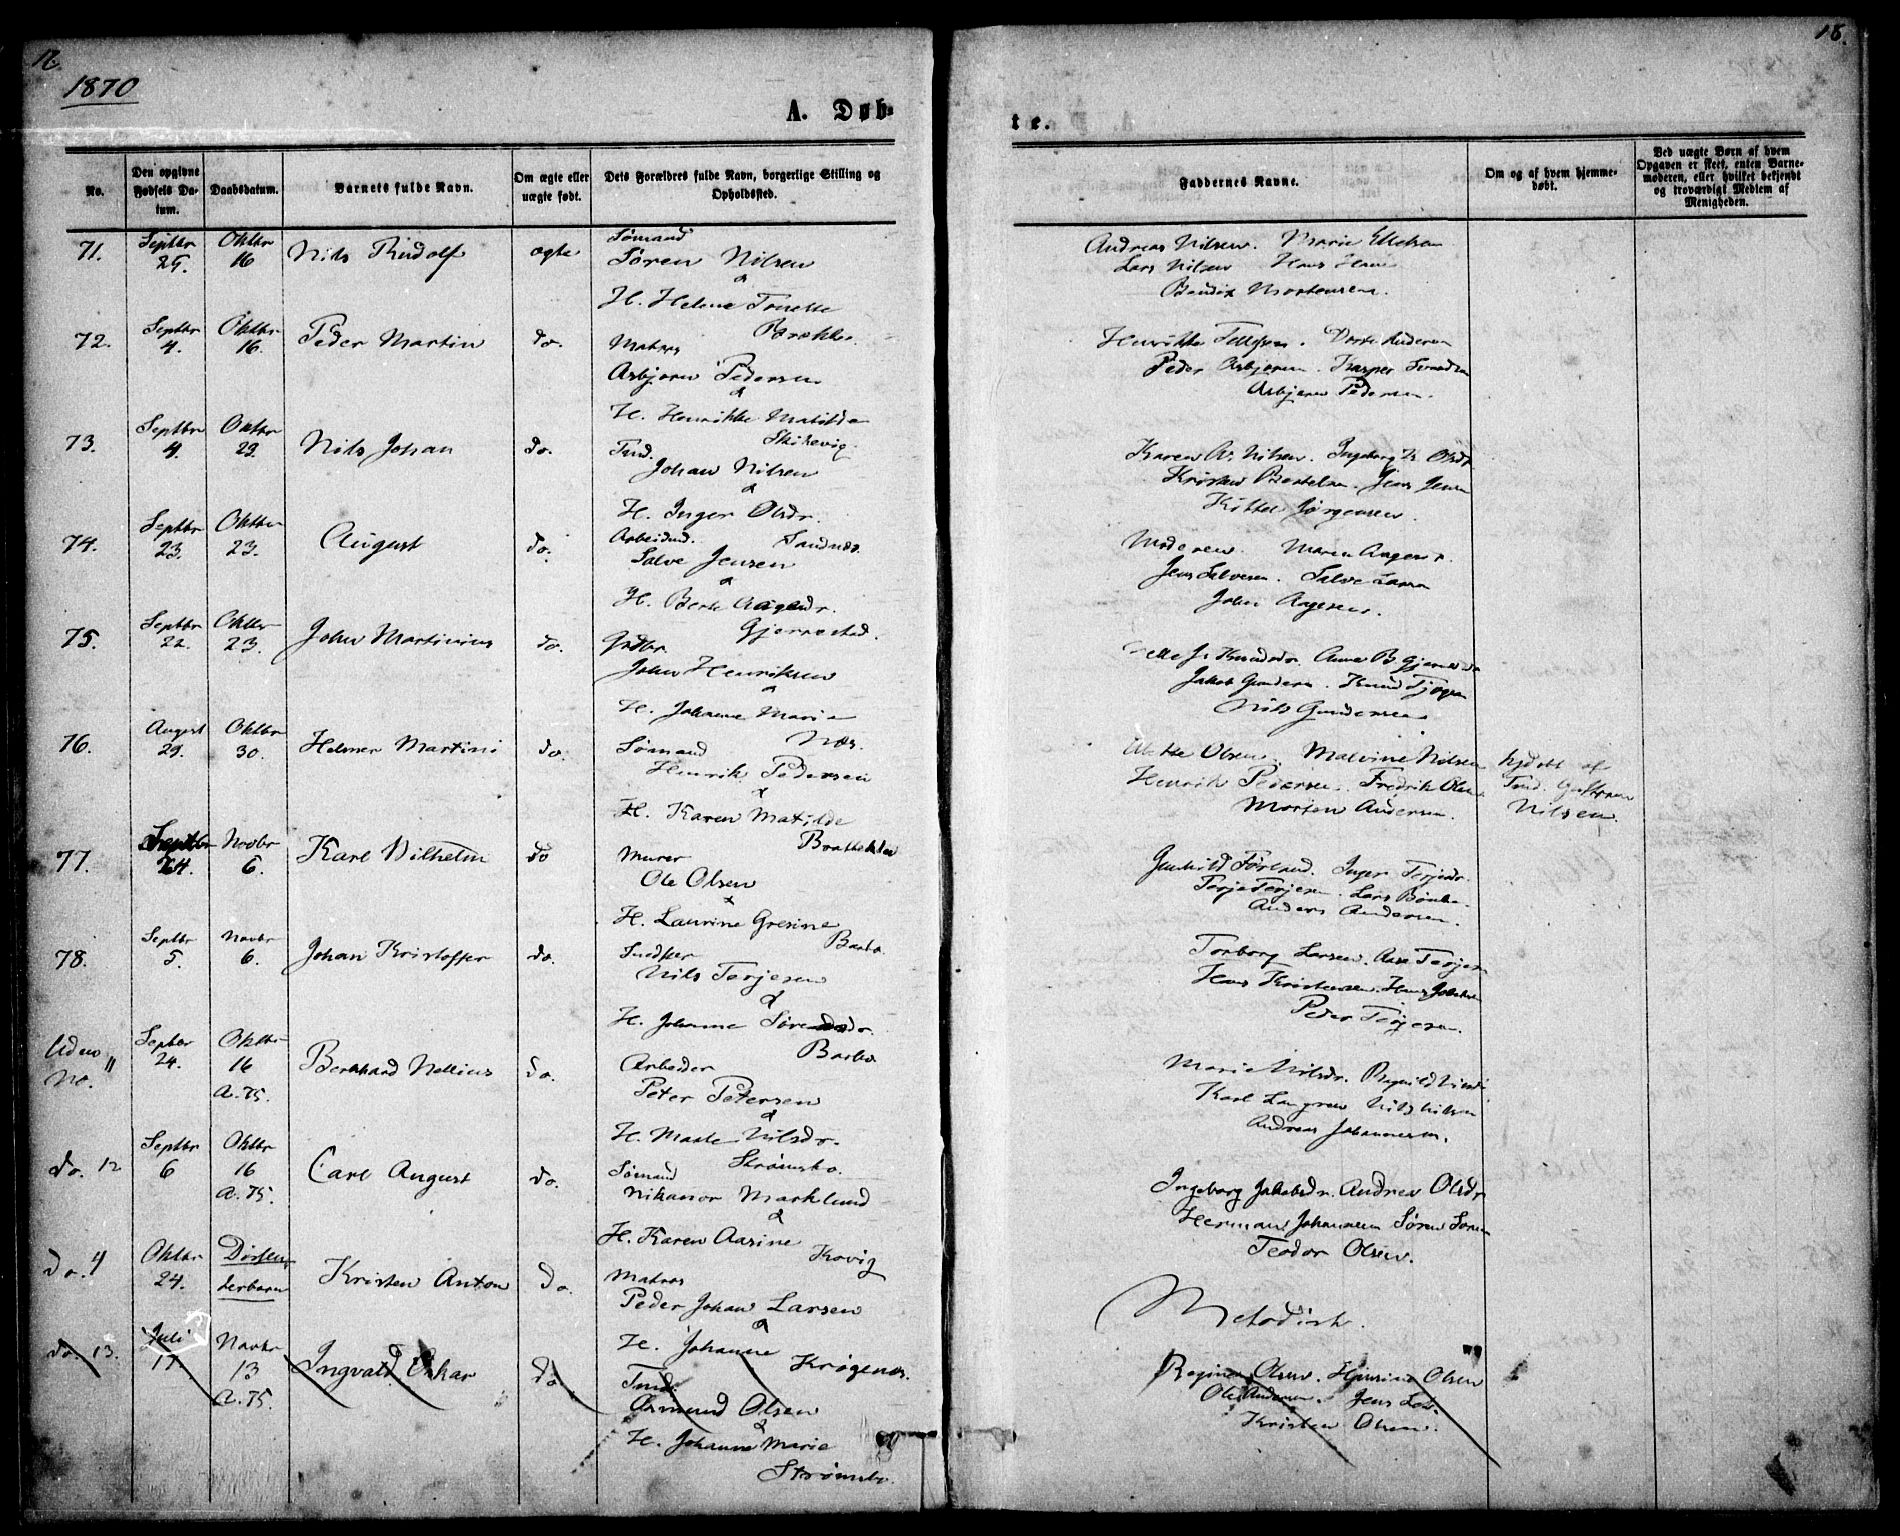 18.
1870
A. Døb-
te.
No.
Den opgivne Fødsels Da-tum.
Daabsdatum.
Barnets fulde Navn.
Om ægte eller uægte født.
Dets Forældres fulde Navn, borgerlige Stilling og Opholdssted.
Faddernes Navne.
Om og af hvem hjemme-døbt.
Ved uægte Børn af hvem Opgaven er skeet, enten Barne-moderen, eller hvilket bekjendt og troværdigt Medlem af Menigheden.
71. Septbr 25. Oktbr 16 Nils Rudolf ægte Sømand
Søren Nilsen
&
H. Helene Tonette
Brække.
Andreas Nilsen. Marie Ellefsen
Lars Nilsen Hans
Bendix Mortensen.
72. Septbr 4. Oktbr 16. Peder Martin do. Matros
Asbjørn Pedersen
&
H. Henrikke Matilde
Skilevig.
Henrikke Tellefsen. Dorte Andersen
Peder Asbjørnsen. Kasper
Asbjørn Pedersen.
73. Septbr 4. Oktbr 23. Nils Johan do. Tmd.
Johan Nilsen
&
H. Inger Olsdr.
Sandnæs.
Karen A. Nilsen. Ingeborg K. Olsdr
Kristen Jens Jensen
Kittel Jørgensen.
74. Septbr 23. Oktbr 23. August do. Arbeidsmd.
Salve Jensen
&
H. Berte Aagesdr.
Gjernestad.
Moderen. Maren Aagesdr.
Jens Salvesen. Salve Larsen
John Aagesen.
75. Septbr 22. Oktbr 23. John Martinius do. Grdbr.
John Henriksen
&
H. Johanne Marie
Næs.
Knudsdr Anne B.
Jakob Gundersen. Knud
Nils Gundersen
76. August 29. Oktbr 30. Helmer Martini do. Sømand
Henrik Pedersen
&
H. Karen Matilde
Brattekler
Mette Olsen. Malvine Nilsen
Henrik Pedersen. Fredrik Olsen
Morten Andersen.
hjdøbt af
Tmd.
Nilsen.
77. Septbr 24. Novbr 6. Karl Vilhelm do Murer
Ole Olsen
&
H. Laurine Gresine
Barbo.
Gunhild Inger Terjesdr.
Terje Terjesen. Lars
Anders Andersen.
78. Septbr 5. Novbr 6. Johan Kristoffer do. Snedker
Nils Terjesen
&
H. Johanne Sørensdr.
Barbo
Torborg Larsen. Aase Terjesen
Hans Kristensen. Hans Jakobsen
Peder Terjesen.
Uden No. 11 Septbr 24. Oktbr 16 A. 75. Bernhard Nellius do. Arbeider
Peter Petersen
&
H. Marte Nilsdr.
Strømsbo.
Marie Nilsdr. Ragnild
Karl Nils Nilsen
Andreas Johannesen.
do. 12 Septbr 6 Oktbr 16 A. 75. Carl August do. Sømand
Nikanor Marklund
&
H. Karen Aasine
Kovig
Ingeborg Jakobsdr. Andrea Olsdr
Herman Johannesen Søren
Teodor Olsen.
do. 4 Oktbr 24. Dissen-
terbarn Kristen Anton do. Matros
Peder Johan Larsen
&
H. Johanne
Krøgenæs.
Metodist.
do. 13. Juli 17. Novbr 13 A. 75. Ingvald Oskar do Tmd.
Osmund Olsen
&
H. Johanne Marie
Strømsbo.
Regine Olsen. Olsen
Ole Andersen. Jens
Kristen Olsen.